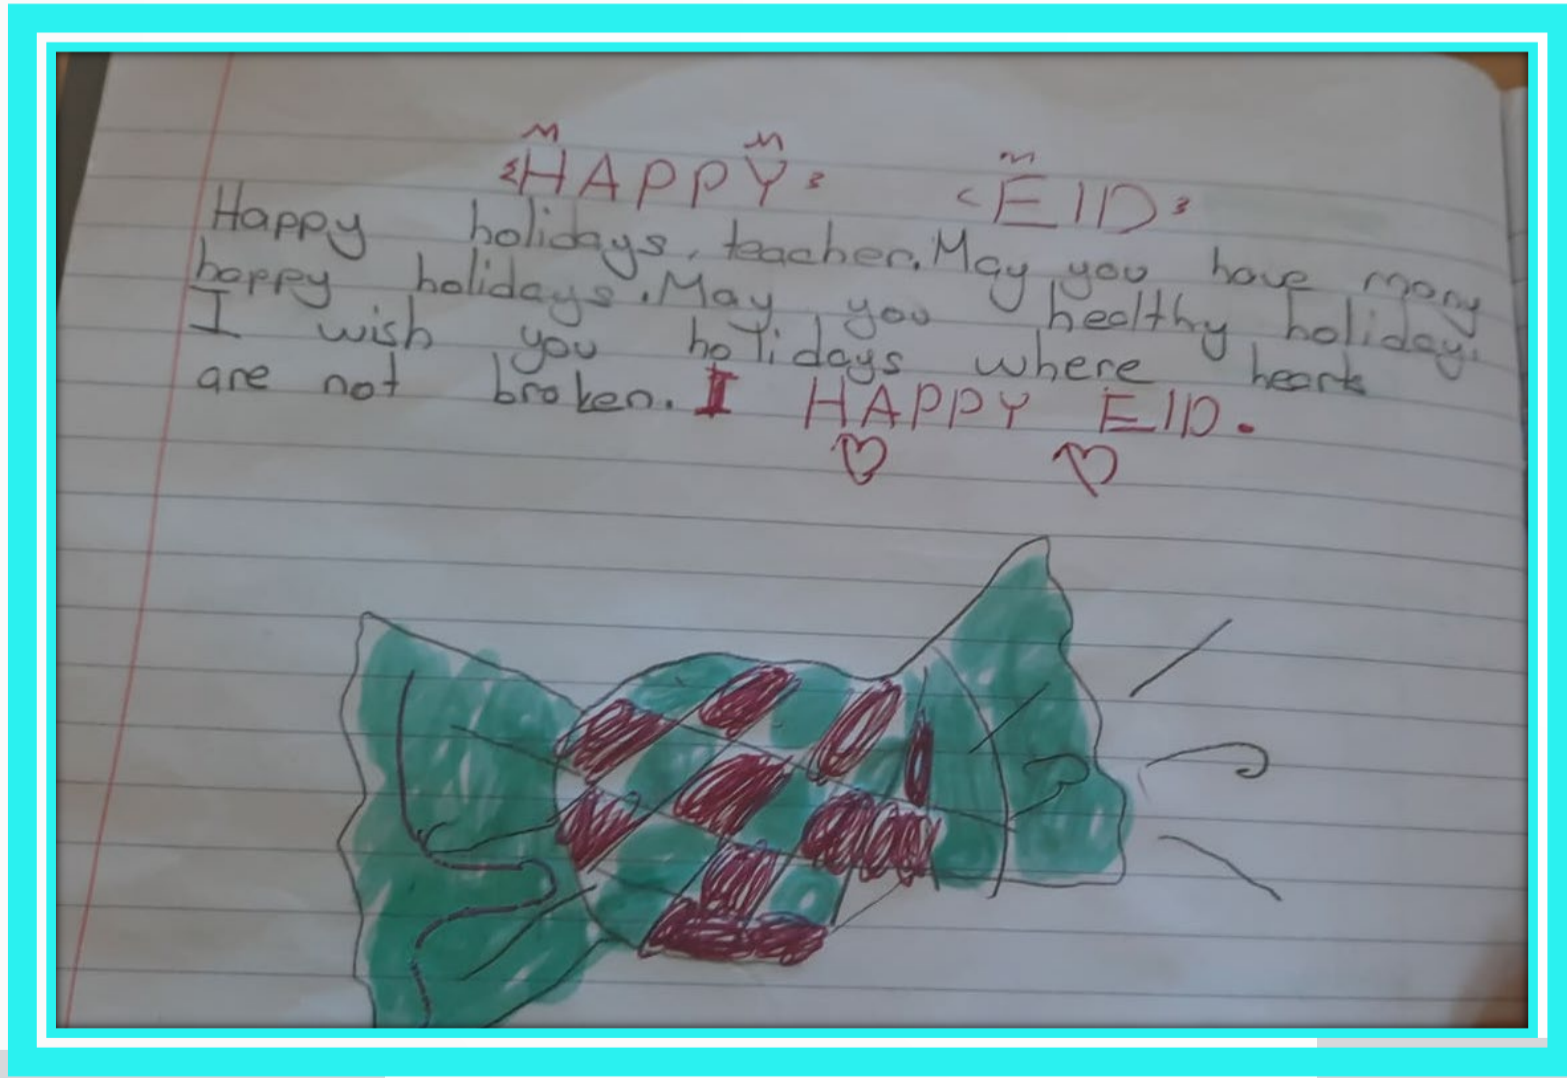 HAPPY EID
Happy holidays, teacher. May you have many
happy holidays. May you healthy holiday.
I wish you holidays where hearts
are not broken. I HAPPY EID.